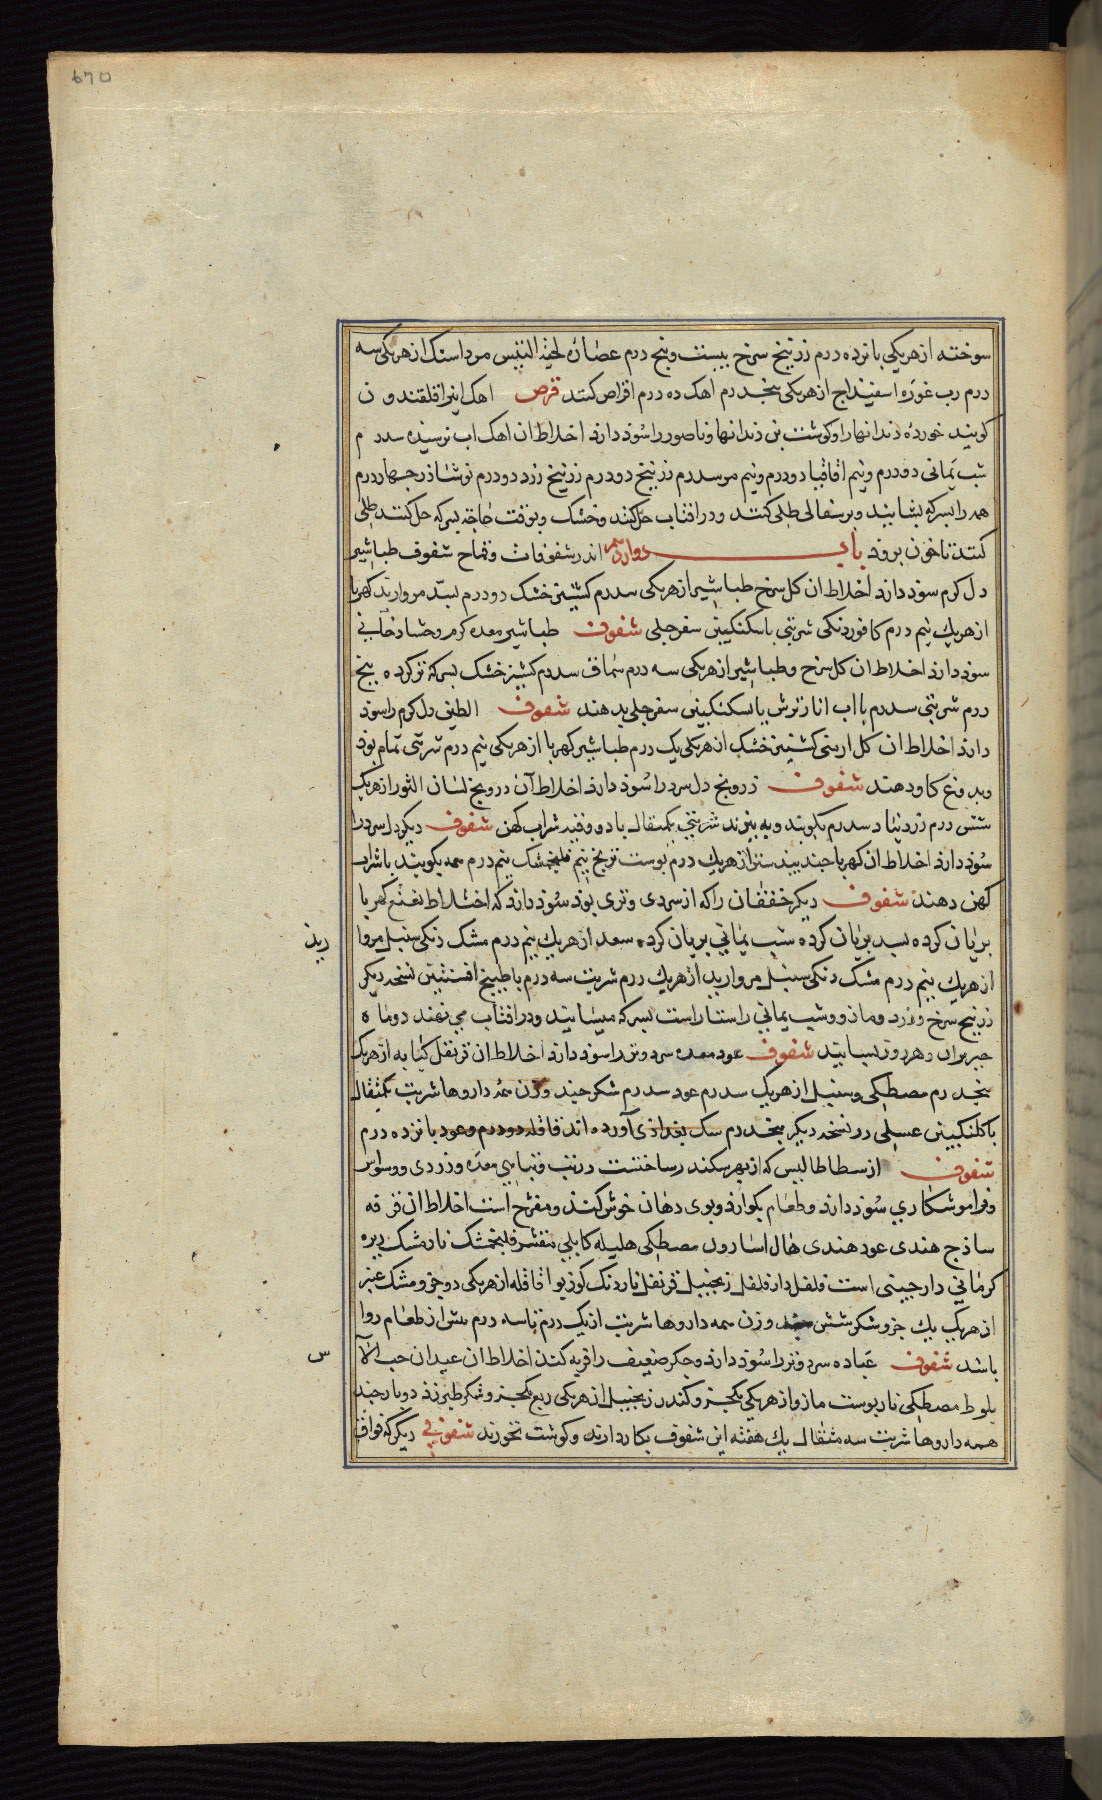 سوخته ازهریکی بانزده درم زرنیخ سرخ بیست وبنج درم عصاره لحیة التیس مرداسنک ازهریکی سه
درم رب غوره اسفیداج ازهریکی بنجدرم اهک ده درم اقراص کنند قرص اهک اینرا قلقندون
کویند خورده دندانهارا وکوشت بن دندانها وناصور را سوذ دارد اخلاط ان اهک اب نرسیده سدرم
شب یمانی دودرم ونیم اقاقیا دودرم ونیم مرسدرم زرنیخ دودرم زرنیخ زرد دودرم نوشاذر جهاردرم
همه را بسرکه بشایند وبرسفالی طلی کنند ودرافتاب خل کنند وخشک وبوقت حاجة بسرکه حل کنند طلی
کنند تا خون برود باب دوازدهم اندر سفوفات وقماح سفوف طباشیر
دل کرم سوذ دارد اخلاط ان کل سرخ طباشیر ازهریکی سدرم کشنیز خشک دودرم بسد مروارید کهربا
ازهریک نیم درم کافور دنکی شربتی باسکنکبین سفرجلی سفوف طباشیر معده کرم وحشا دخانی
سوذ دارد اخلاط ان کل سرخ وطباشیر ازهریکی سه درم سماق سدرم کشنیز خشک بسرکه ترکرده بنج
درم شربتی سدرم بااب انارترش یا سکنکبین سفرجلی بدهند سفوف الطین دل کرم راسوذ
دارد اخلاط ان کل ارمنی کشنیز خشک ازهریکی یک درم طباشیر کهربا ازهریکی نیم درم شربتی تمام بوذ
وبدوغ کاو دهند سفوف زرونج دل سردرا سوذ دارد اخلاط آن درونج لسان الثور ازهریک
شش درم زرنباد سدرم بکوبند وبه بیزند شربتی یکمثقال بادو وقیه شراب کهن سفوف دیکر دل سردرا
سوذ دارد اخلاط ان کهربا جندبیدستر ازهریک درم بوست ترنج نیم فلنجمشک نیم درم همه بکوبند باشراب
کهن دهند سفوف دیکر خفقان راکه ازسردی وتری بوذ سوذ دارد که اخلاط نعنع کهربا
بریان کرده بسد بریان کرده شب یمانی بریان کرده سعد ازهریک نیم درم مشک دنکی سنبل مروا
رید
ازهریک نیم درم مشک دنکی سنبل مروارید ازهریک درم شربت سه درم باطبیخ افسنتین نسخه دیکر
زرنیخ سرخ وزرد ومازو وشب یمانی راستاراست بسرکه میسایند ودرافتاب می نهند دوماه
وهردوز بسایند سفوف عود معده سرد وتررا سوذ دارد اخلاط ان قرنفل کبابه ازهریک
بنجدرم مصطکی وسنبل ازهریک سدرم عود سدرم شکر جند وزن همه داروها شربت یکمثقال
باکلنکبین عسلی درنسخه دیکر بنجدرم سک بغداذی آورده اند قاقله دودرم وعود بانزده درم
سفوف ازسطاطالیس که ازبهر سکندر ساختست درتب وتباهی معده وزردی ووسواس
وفراموشکاری سوذ دارد وطعام بکوارذ وبوی دهان خوش کند ومفرح است اخلاط ان قرفه
ساذج هندی عود هندی هال اسارون مصطکی هلیله کابلی مقشر فلنجمشک نارمشک زیره
کرمانی دارجینی است فلفل دارفلفل زنجبیل قرنفل ناردنک کوزبوا قاقله ازهریکی دوجزو مشک عنبر
ازهریک یک جزو شکر شش وزن همه داروها شربت ازیک درم تاسه درم بیش ازطعام روا
باشد سفوف عباده سرد وتررا سوذ دارد وجکر ضعیف را قریه کند اخلاط ان عیدان حب الآ
س
بلوط مصطکی ناربوست مازو ازهریکی یکجز وکندر زنجبیل ازهریکی ربع یکجز وشکر طبرزد دوبار جند
همه داروها شربت سه مثقال یک هفته این سفوف بکاردارند وکوشت نخورند سفوفی دیکرکه فواق